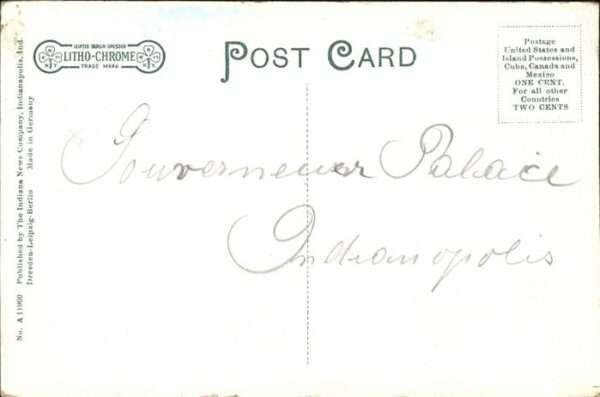 LEIPZIG BERLIN DRESDEN
LITHO-CHROME
TRADE MARK
POST CARD
Postage
United States and
Island Possessions,
Cuba, Canada and
Mexico
ONE CENT.
For all other
Countries
TWO CENTS
Gouverneur Palace
Indianopolis
No. A 11960 Published by The Indiana News Company, Indianapolis, Ind.
Dresden-Leipzig-Berlin Made in Germany